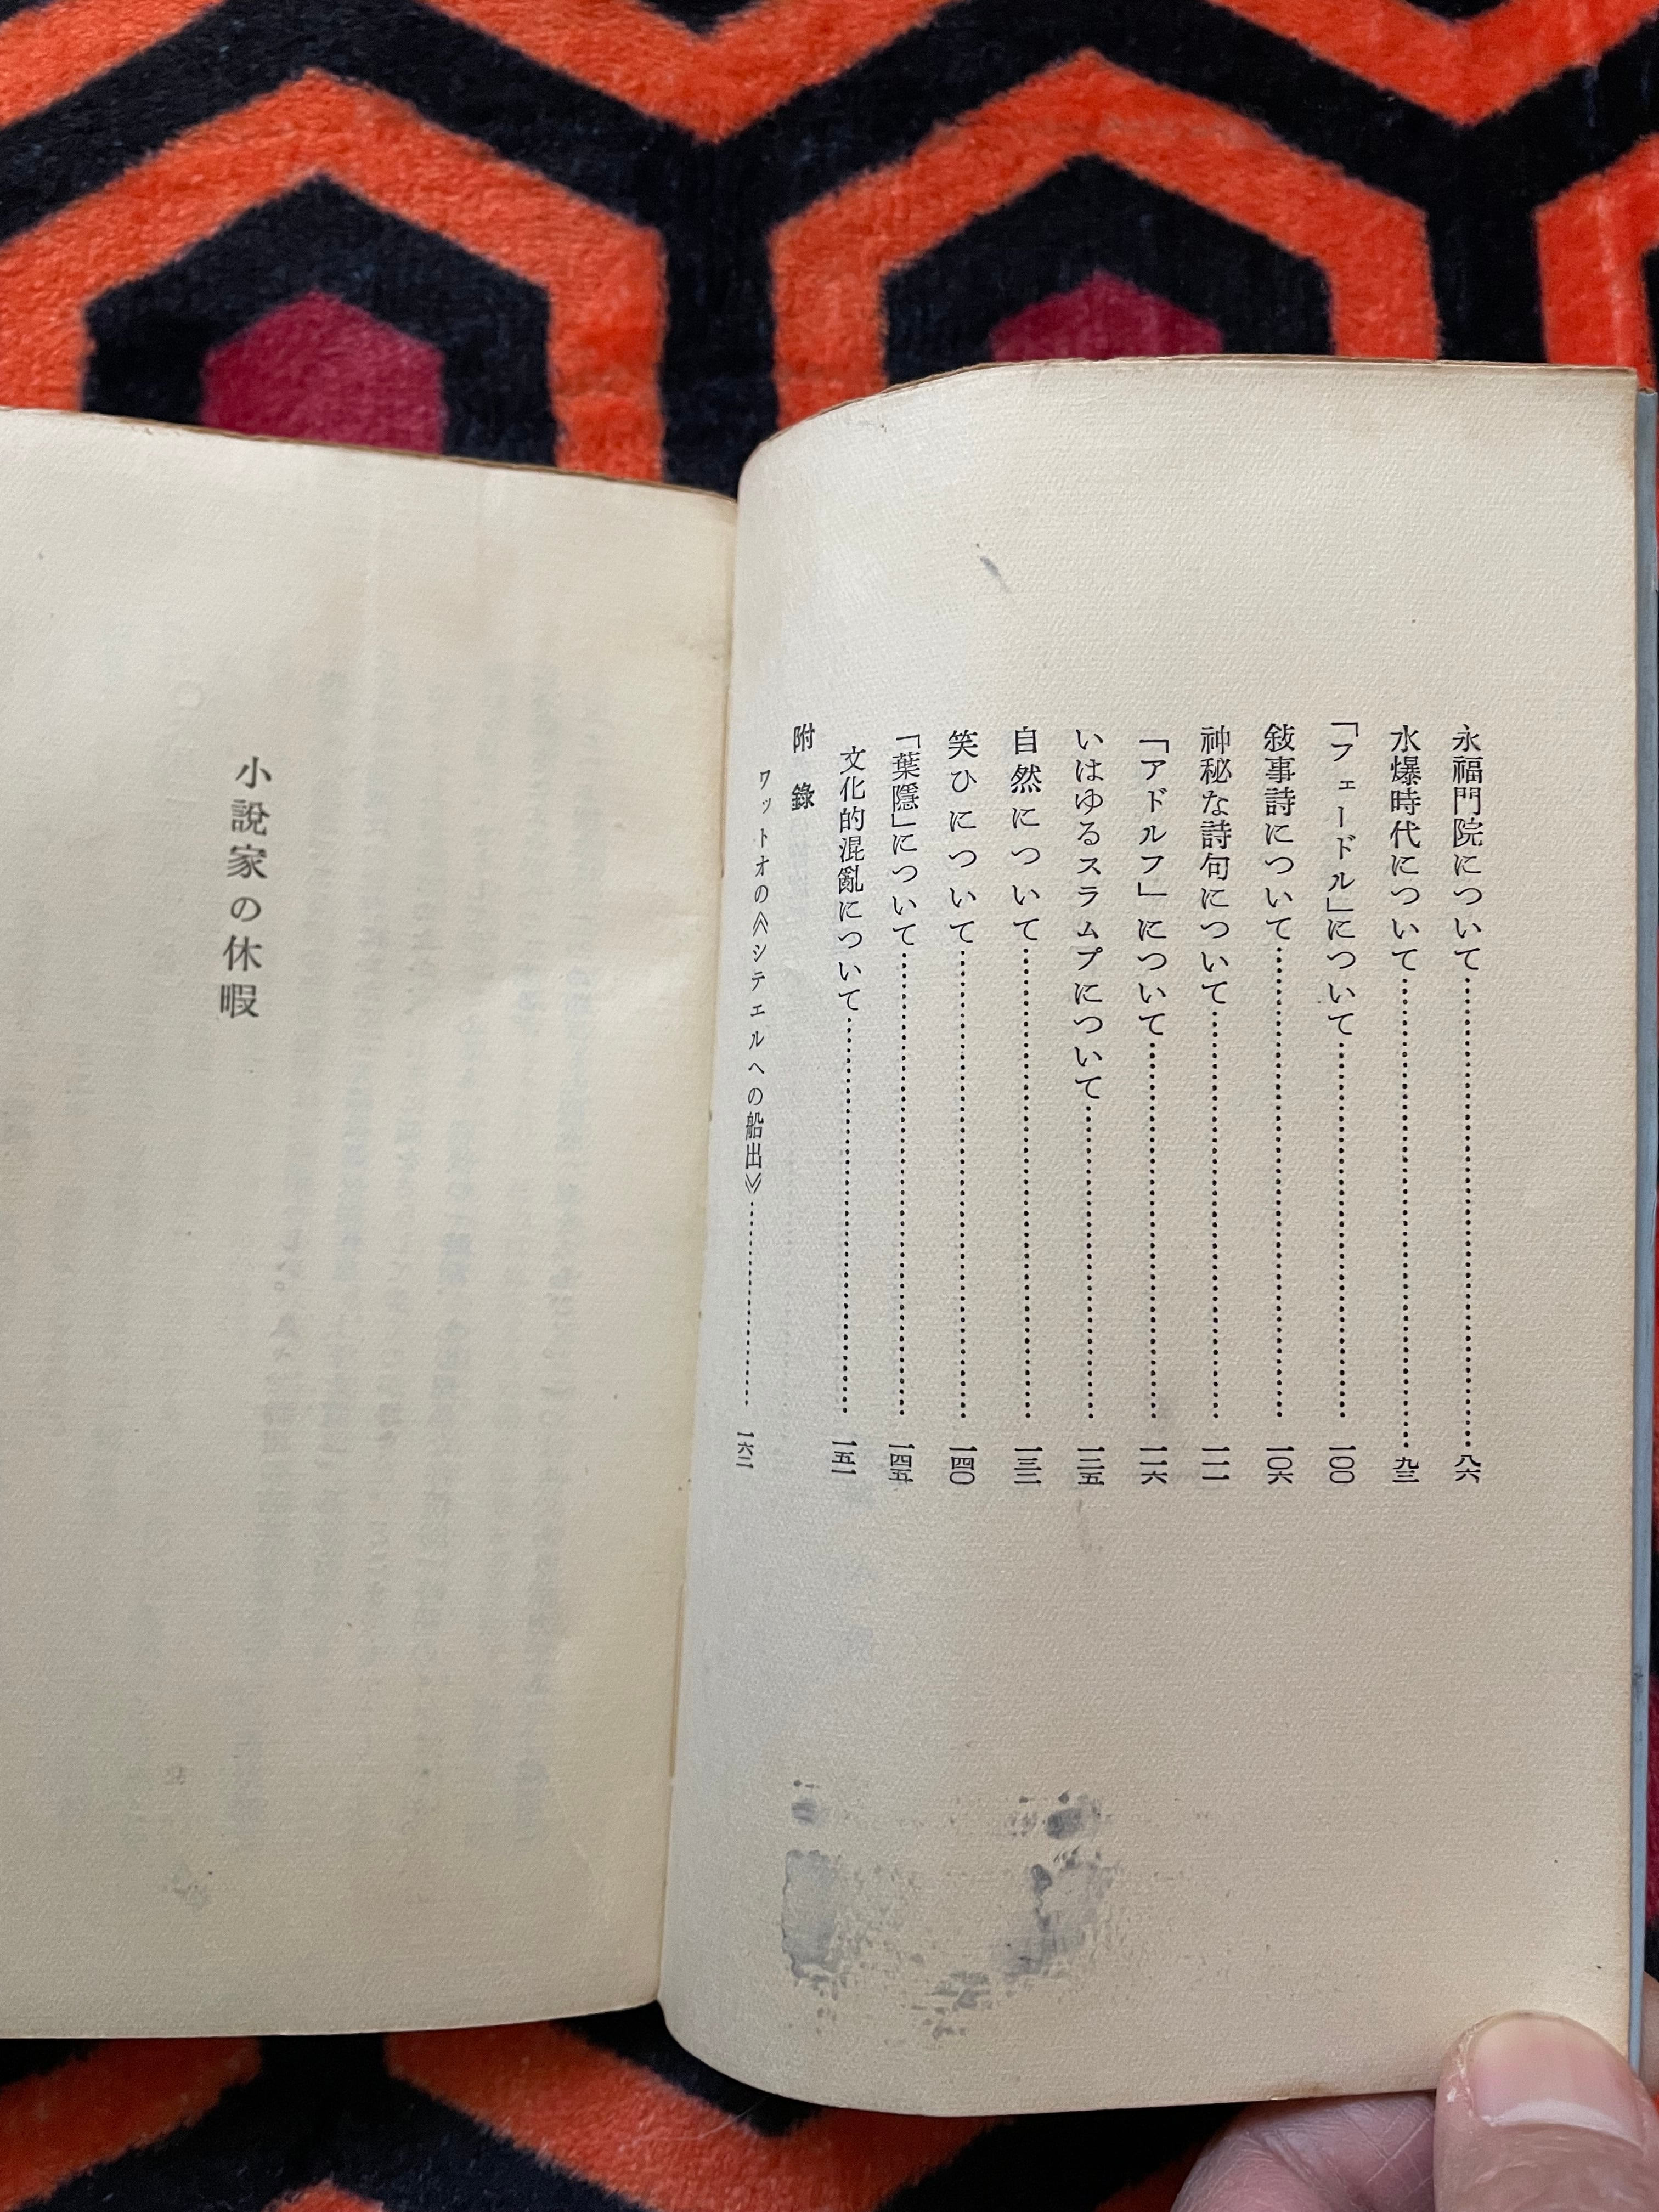 永福門院について……八六
水爆時代について……九三
「フェードル」について……一〇〇
敍事詩について……一〇六
神秘な詩句について……一一一
「アドルフ」について……一一六
いはゆるスラムプについて……一二五
自然について……一三二
笑ひについて……一四〇
「葉隱」について……一四五
文化的混亂について……一五一
附錄
ワットオの《シテエルへの船出》……一六二
小說家の休暇